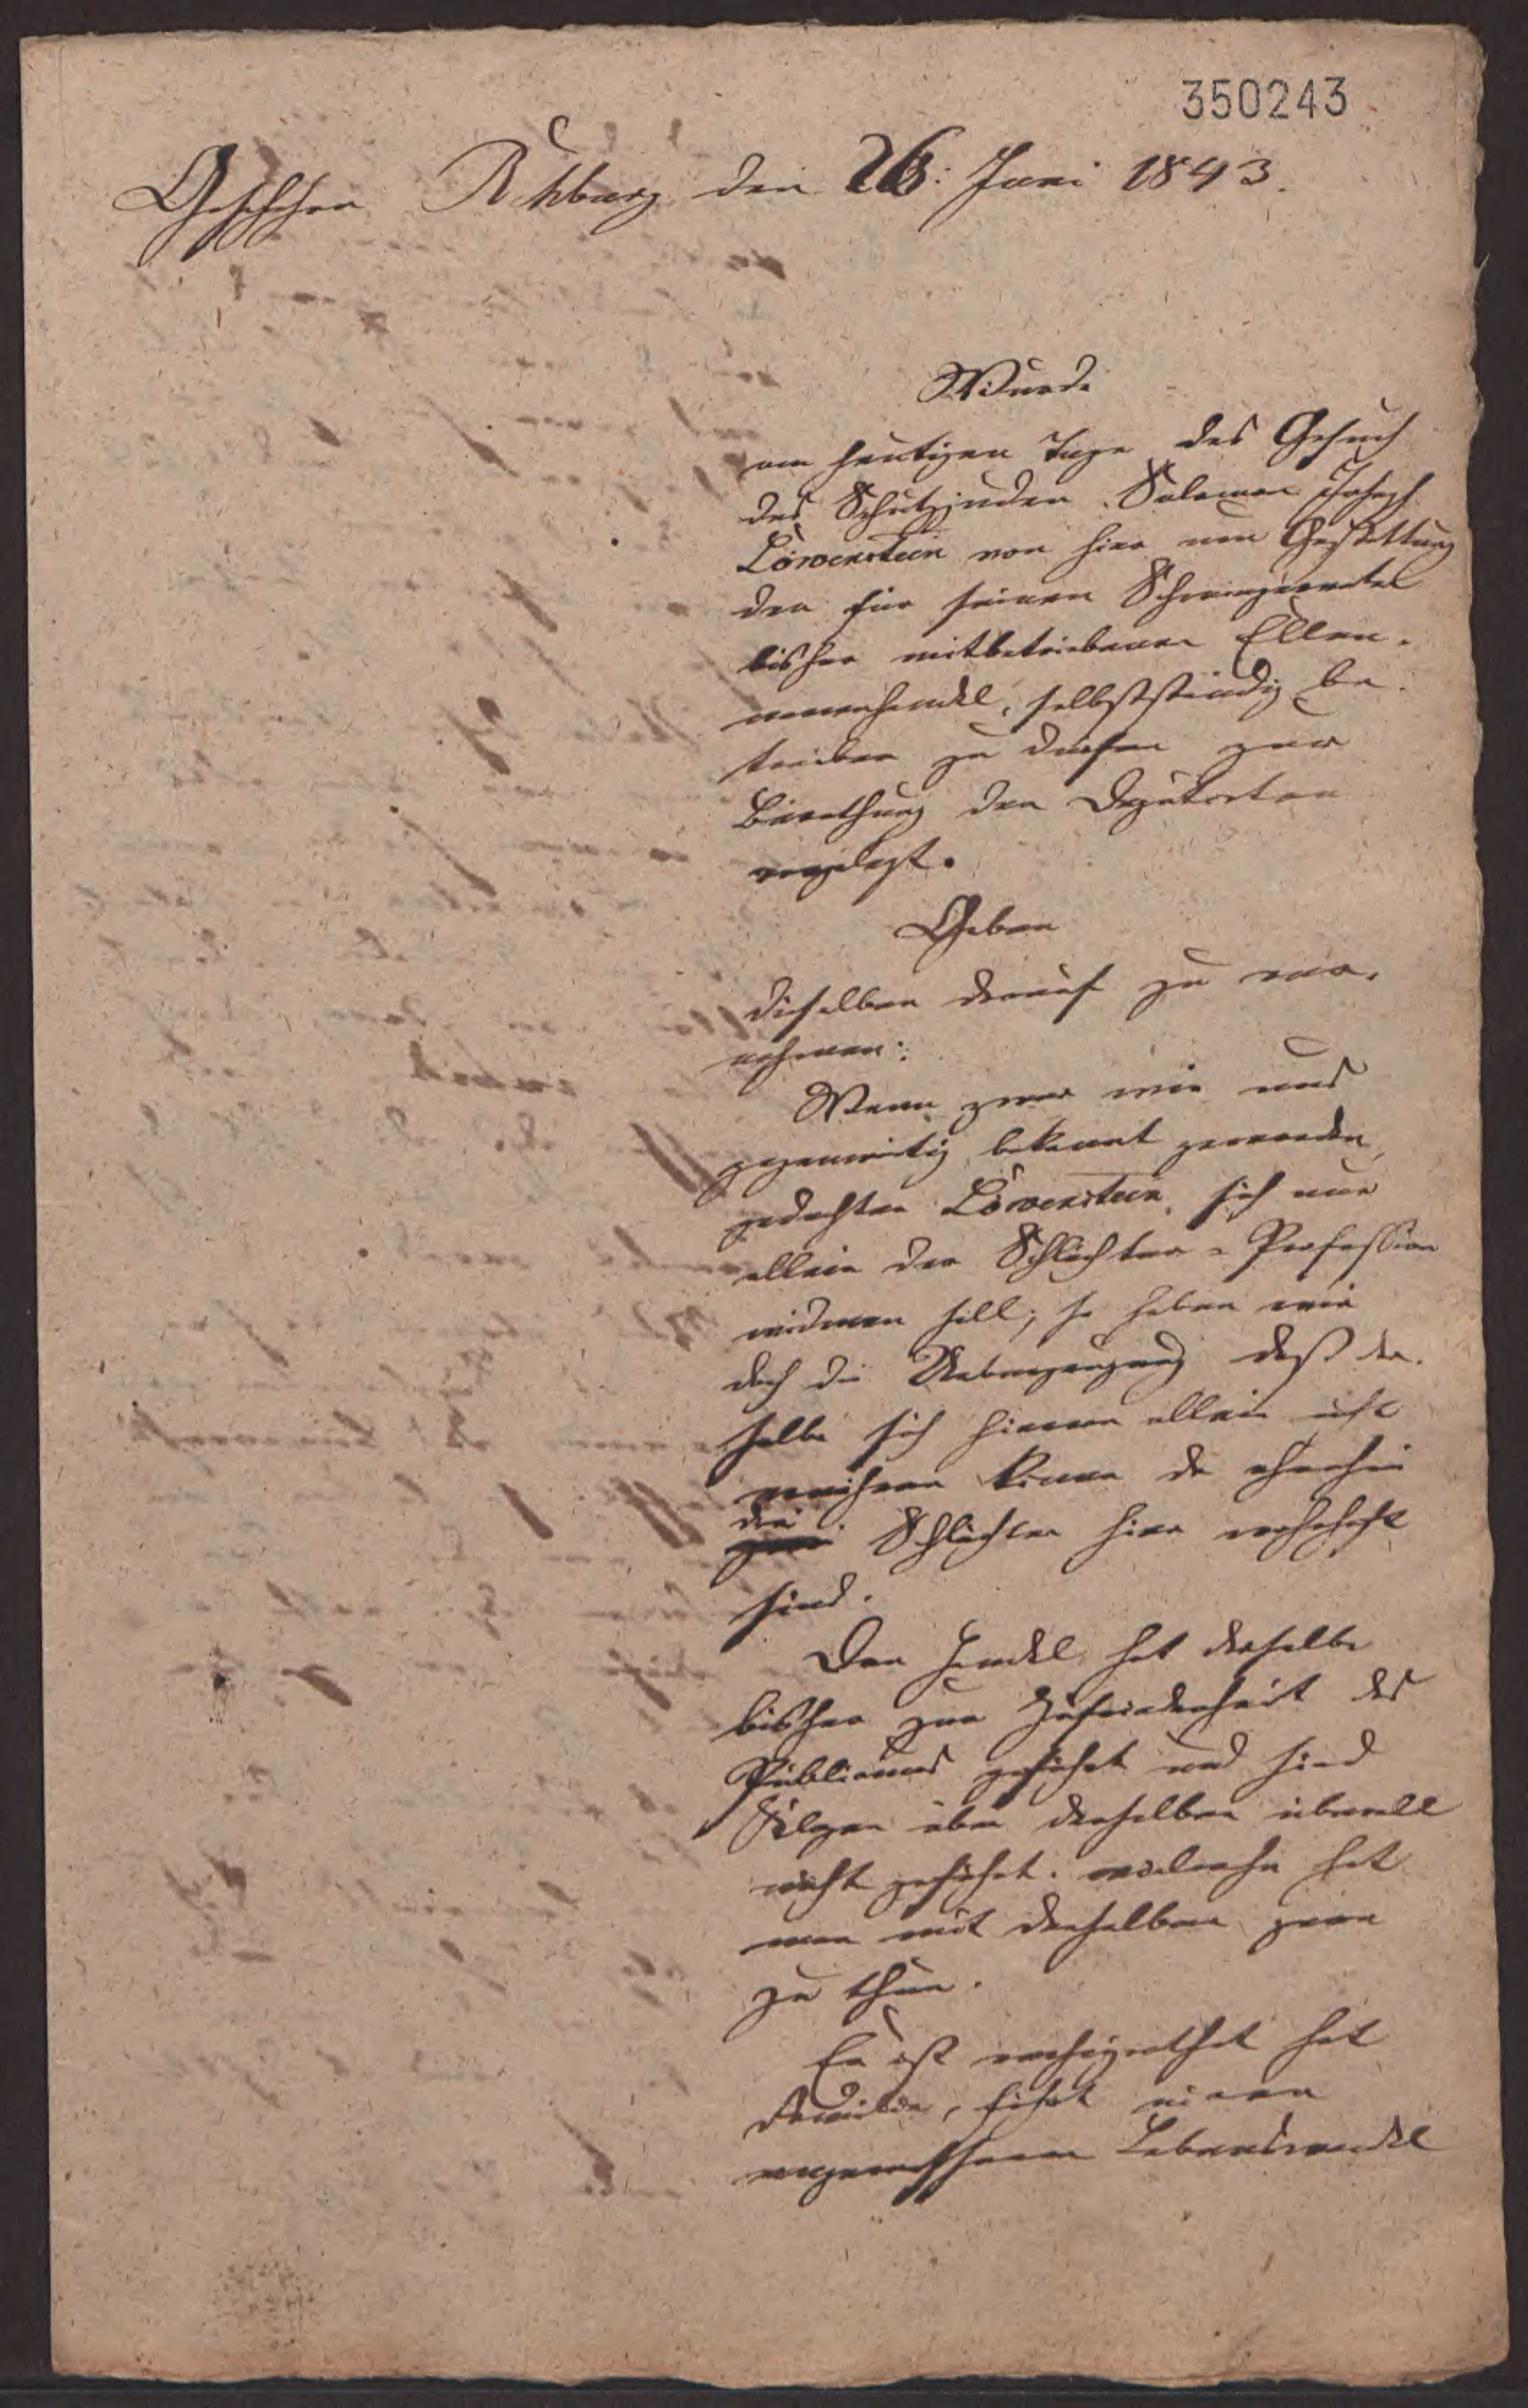 350243
Geschehen Rehburg den 26: Juni 1843.
Wurde
am heutigen Tage das Gesuch
des Schutzjuden Salomon Joseph
Löwenstein von hier um Gestattung
den für seinen Schwiegervater
bisher mitbetriebenen Ellen-
waarenhandel, selbstständig be-
treiben zu dürfen zur
Berathung den Deputirten
vorgelegt.
Geben
dieselben darauf zu ver-
nehmen:
Wenn zwar wie uns
gegenwärtig bekannt geworden,
gedachter Löwenstein, sich nur
allein der Schlächter-Profession
widmen soll; so haben wir
doch die Ueberzeugung daß der-
selbe sich hievon allein nicht
ernähren könne da ohnehin
drei Schlächter hier wohnhaft
sind.
Den Handel hat derselbe
bisher zur Zufriedenheit des
Publicums geführt und sind
Klagen über denselben überall
nicht geführt. vielmehr hat
man mit demselben gern
zu thun.
Er ist verheirathet hat
Familie, führt einen
Lebenswandel